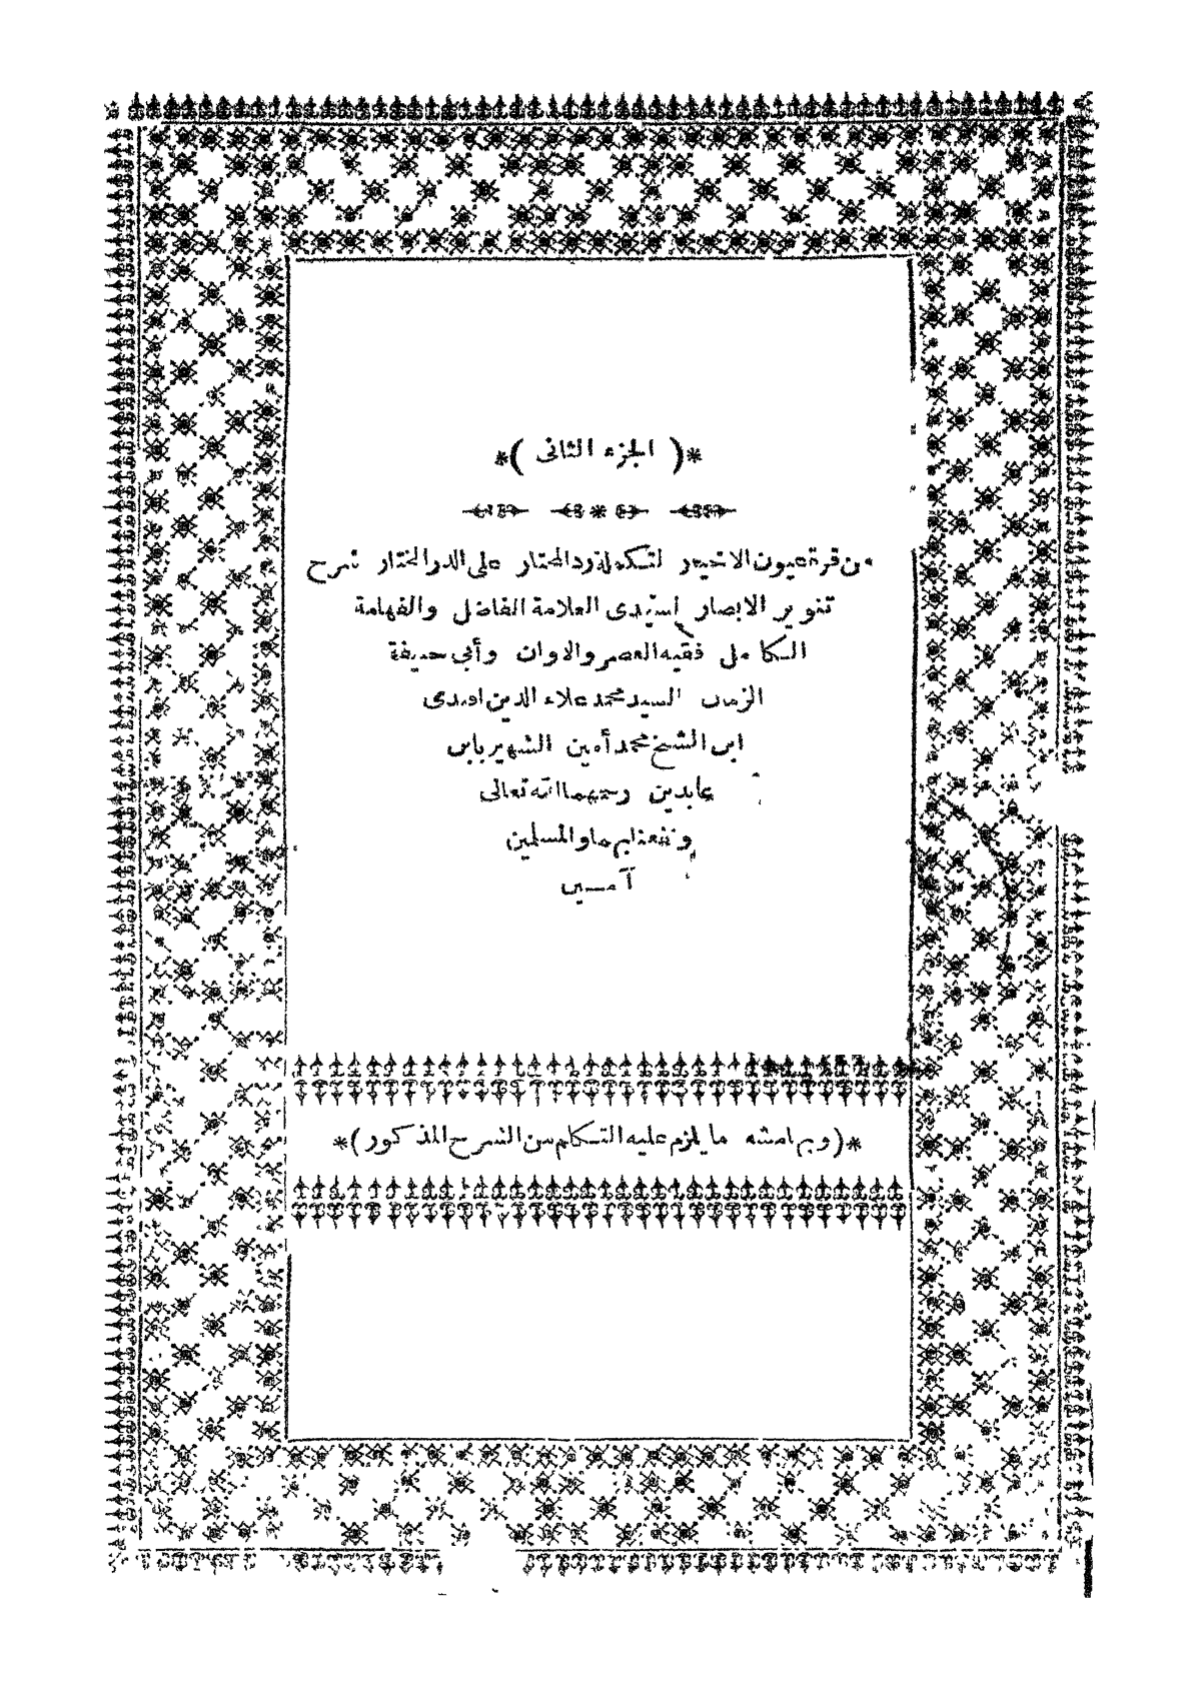 *( الجزء الثانى )*
من قرة عيون الاخيار لتكملة رد المحتار على الدر المختار شرح
تنوير الابصار لسيدى العلامة الفاضل والفهامة
الكامل فقيه العصر والاوان وأبى حنيفة
الزمان السيد محمد علاء الدين افندى
ابن الشيخ محمد أمين الشهير بابن
عابدين رحمهما الله تعالى
ونفعنا بهما والمسلمين
آمين
*( وبهامشه ما يلزم عليه التكلم من الشرح المذكور )*